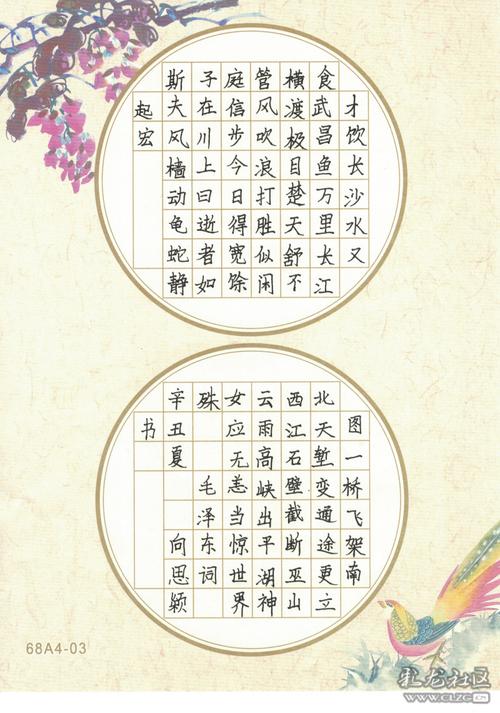 才饮长沙水又
食武昌鱼万里长江
横渡极目楚天舒不
管风吹浪打胜似闲
庭信步今日得宽馀
子在川上曰逝者如
斯夫风樯动龟蛇静
起宏
图一桥飞架南
北天堑变通途更立
西江石壁截断巫山
云雨高峡出平湖神
女应无恙当惊世界
殊 毛泽东词
辛丑夏 向思颖
书
68A4-03
麒龙社区
WWW.CLZG.CN